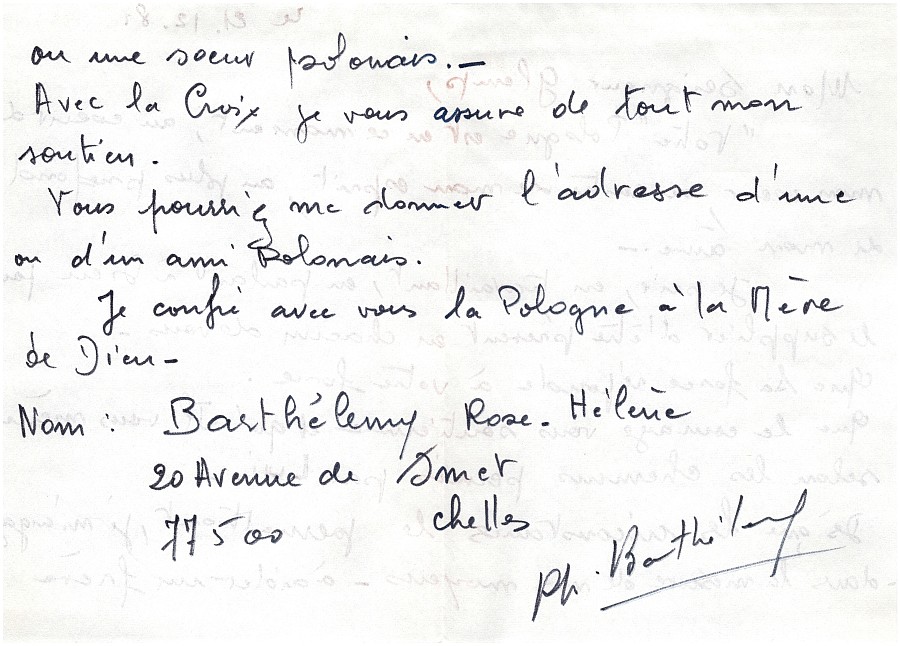 ou une soeur polonais. -
Avec la Croix je vous assure de tout mon
soutien.
Vous pourriez me donner l'adresse d'une
ou d'un ami Polonais.
Je confie avec vous la Pologne à la Mère
de Dieu -
Nom : Barthélemy Rose. Hélène
20 Avenue de
77500 Chelles
Ph. Barthélemy